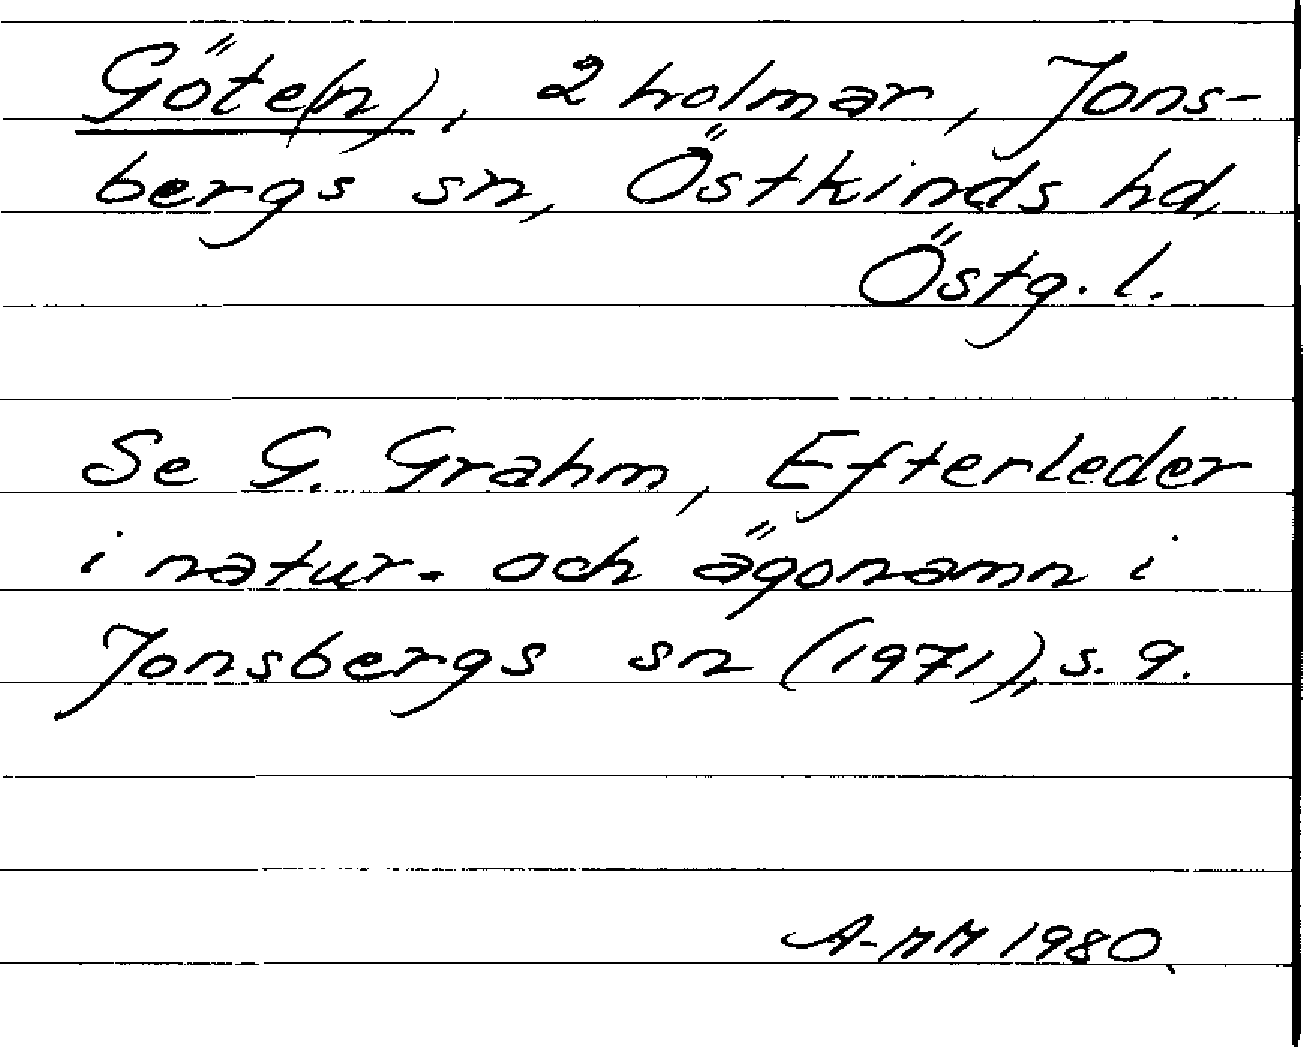 Göte(n), 2 holmar, Jons-
bergs sn, Östkinds hd,
Östg. l.
Se G. Grahm, Efterleder
i natur- och ägonamn i
Jonsbergs sn (1971), s. 9.
A-MM 1980.